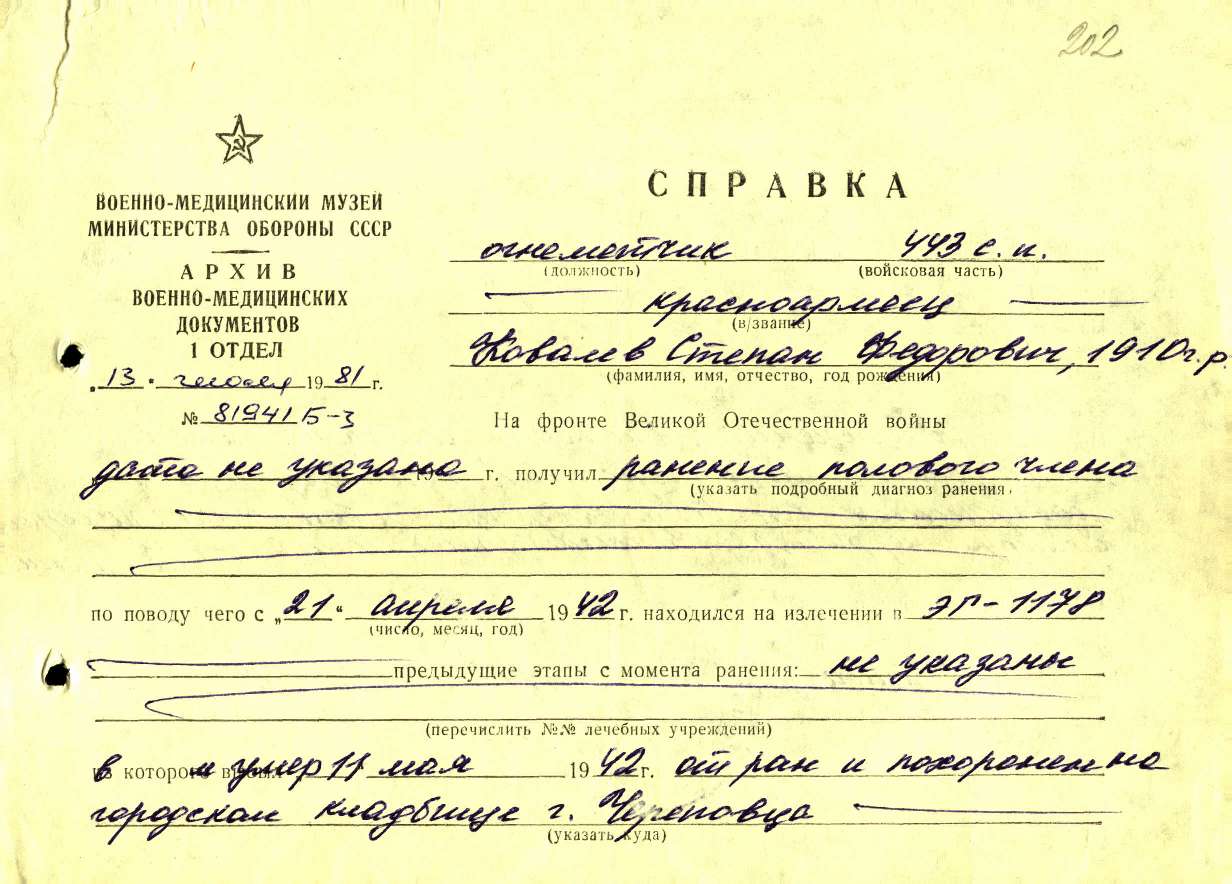 202
ВОЕННО-МЕДИЦИНСКИЙ МУЗЕЙ
МИНИСТЕРСТВА ОБОРОНЫ СССР
АРХИВ
ВОЕННО-МЕДИЦИНСКИХ
ДОКУМЕНТОВ
1 ОТДЕЛ
„13" 1981 г.
№ 81941 Б-3
СПРАВКА
огнеметчик 443 с. п.
(должность) (войсковая часть)
красноармеец
(в/звание)
Ковалев Степан Федорович, 1910 г. р.
(фамилия, имя, отчество, год рождения)
На фронте Великой Отечественной войны
дата не указана 19 г. получил ранение полового члена
(указать подробный диагноз ранения)
по поводу чего с „21" апреля 1942 г. находился на излечении в ЭГ-1178
(число, месяц, год)
предыдущие этапы с момента ранения: не указаны
(перечислить №№ лечебных учреждений)
в котором и умер 11 мая 1942 г. от ран и похоронен на
городском кладбище г. Череповца
(указать куда)